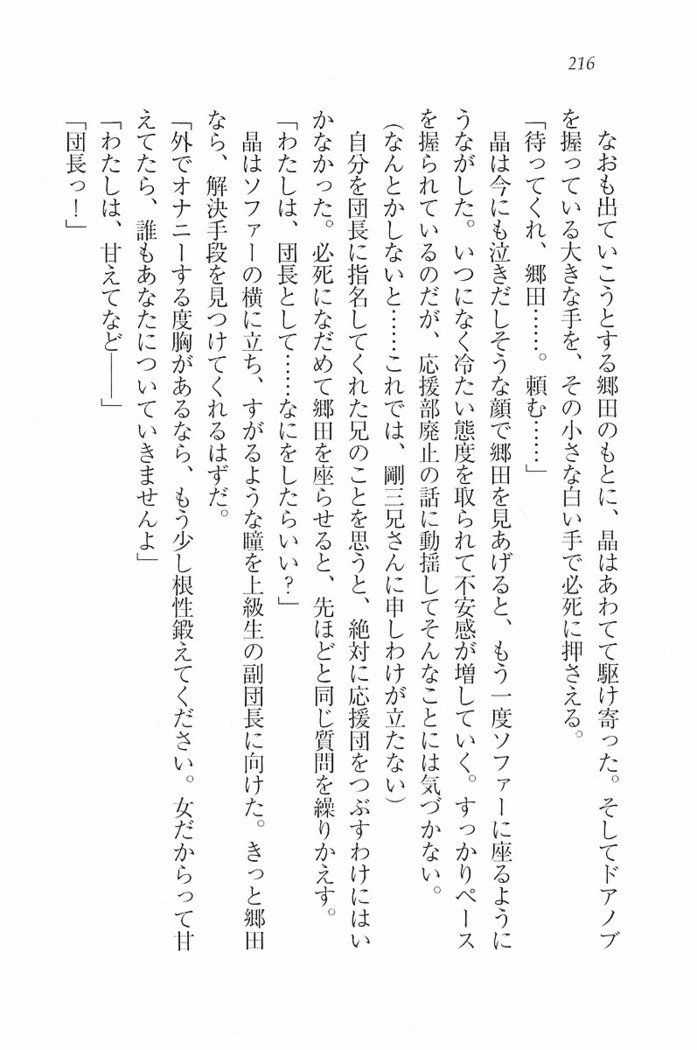 216
なおも出ていこうとする郷田のもとに、晶はあわてて駆け寄った。そしてドアノブ
を握っている大きな手を、その小さな白い手で必死に押さえる。
「待ってくれ、郷田……。頼む……」
晶は今にも泣きだしそうな顔で郷田を見あげると、もう一度ソファーに座るように
うながした。いつになく冷たい態度を取られて不安感が増していく。すっかりペース
を握られているのだが、応援部廃止の話に動揺してそんなことには気づかない。
(なんとかしないと……これでは、剛三兄さんに申しわけが立たない)
自分を団長に指名してくれた兄のことを思うと、絶対に応援団をつぶすわけにはい
かなかった。必死になだめて郷田を座らせると、先ほどと同じ質問を繰りかえす。
「わたしは、団長として……なにをしたらいい?」
晶はソファーの横に立ち、すがるような瞳を上級生の副団長に向けた。きっと郷田
なら、解決手段を見つけてくれるはずだ。
「外でオナニーする度胸があるなら、もう少し根性鍛えてください。女だからって甘
えてたら、誰もあなたについていきませんよ」
「わたしは、甘えてなど――」
「団長っ!」